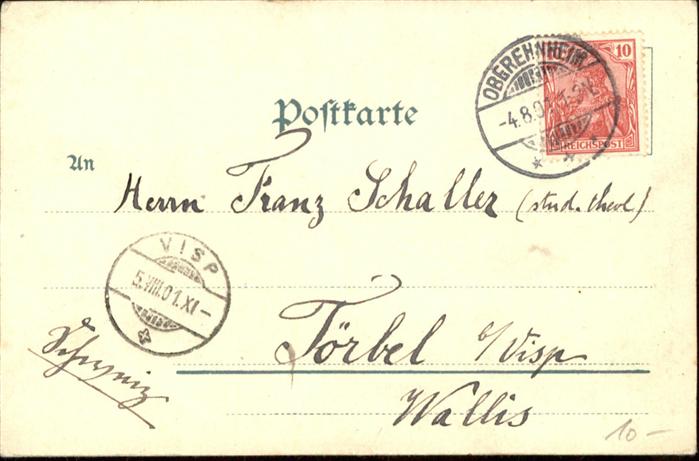 OBEREHNHEIM
-4.8.01. 1-2N.
10
REICHSPOST
Postkarte
An
Herrn Franz Schaller (stud. theol)
VISP
5.VIII.01.XI-
Törbel b/Visp
Schweiz
Wallis
10-